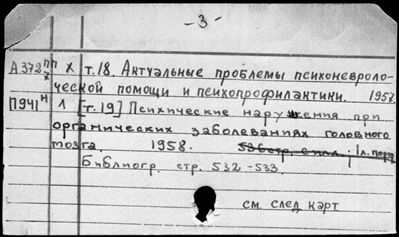 - 3 -
А372 пп х х т.18. Актуальные проблемы психоневроло-
ческой помощи и психопрофилактики. 1958.
П941 н л [т.19] Психические нарушения при
органических заболеваниях головного
мозга. 1958. 536 стр. с илл.; 1 л. порт
Библиогр. стр. 532-533.
см. след карт